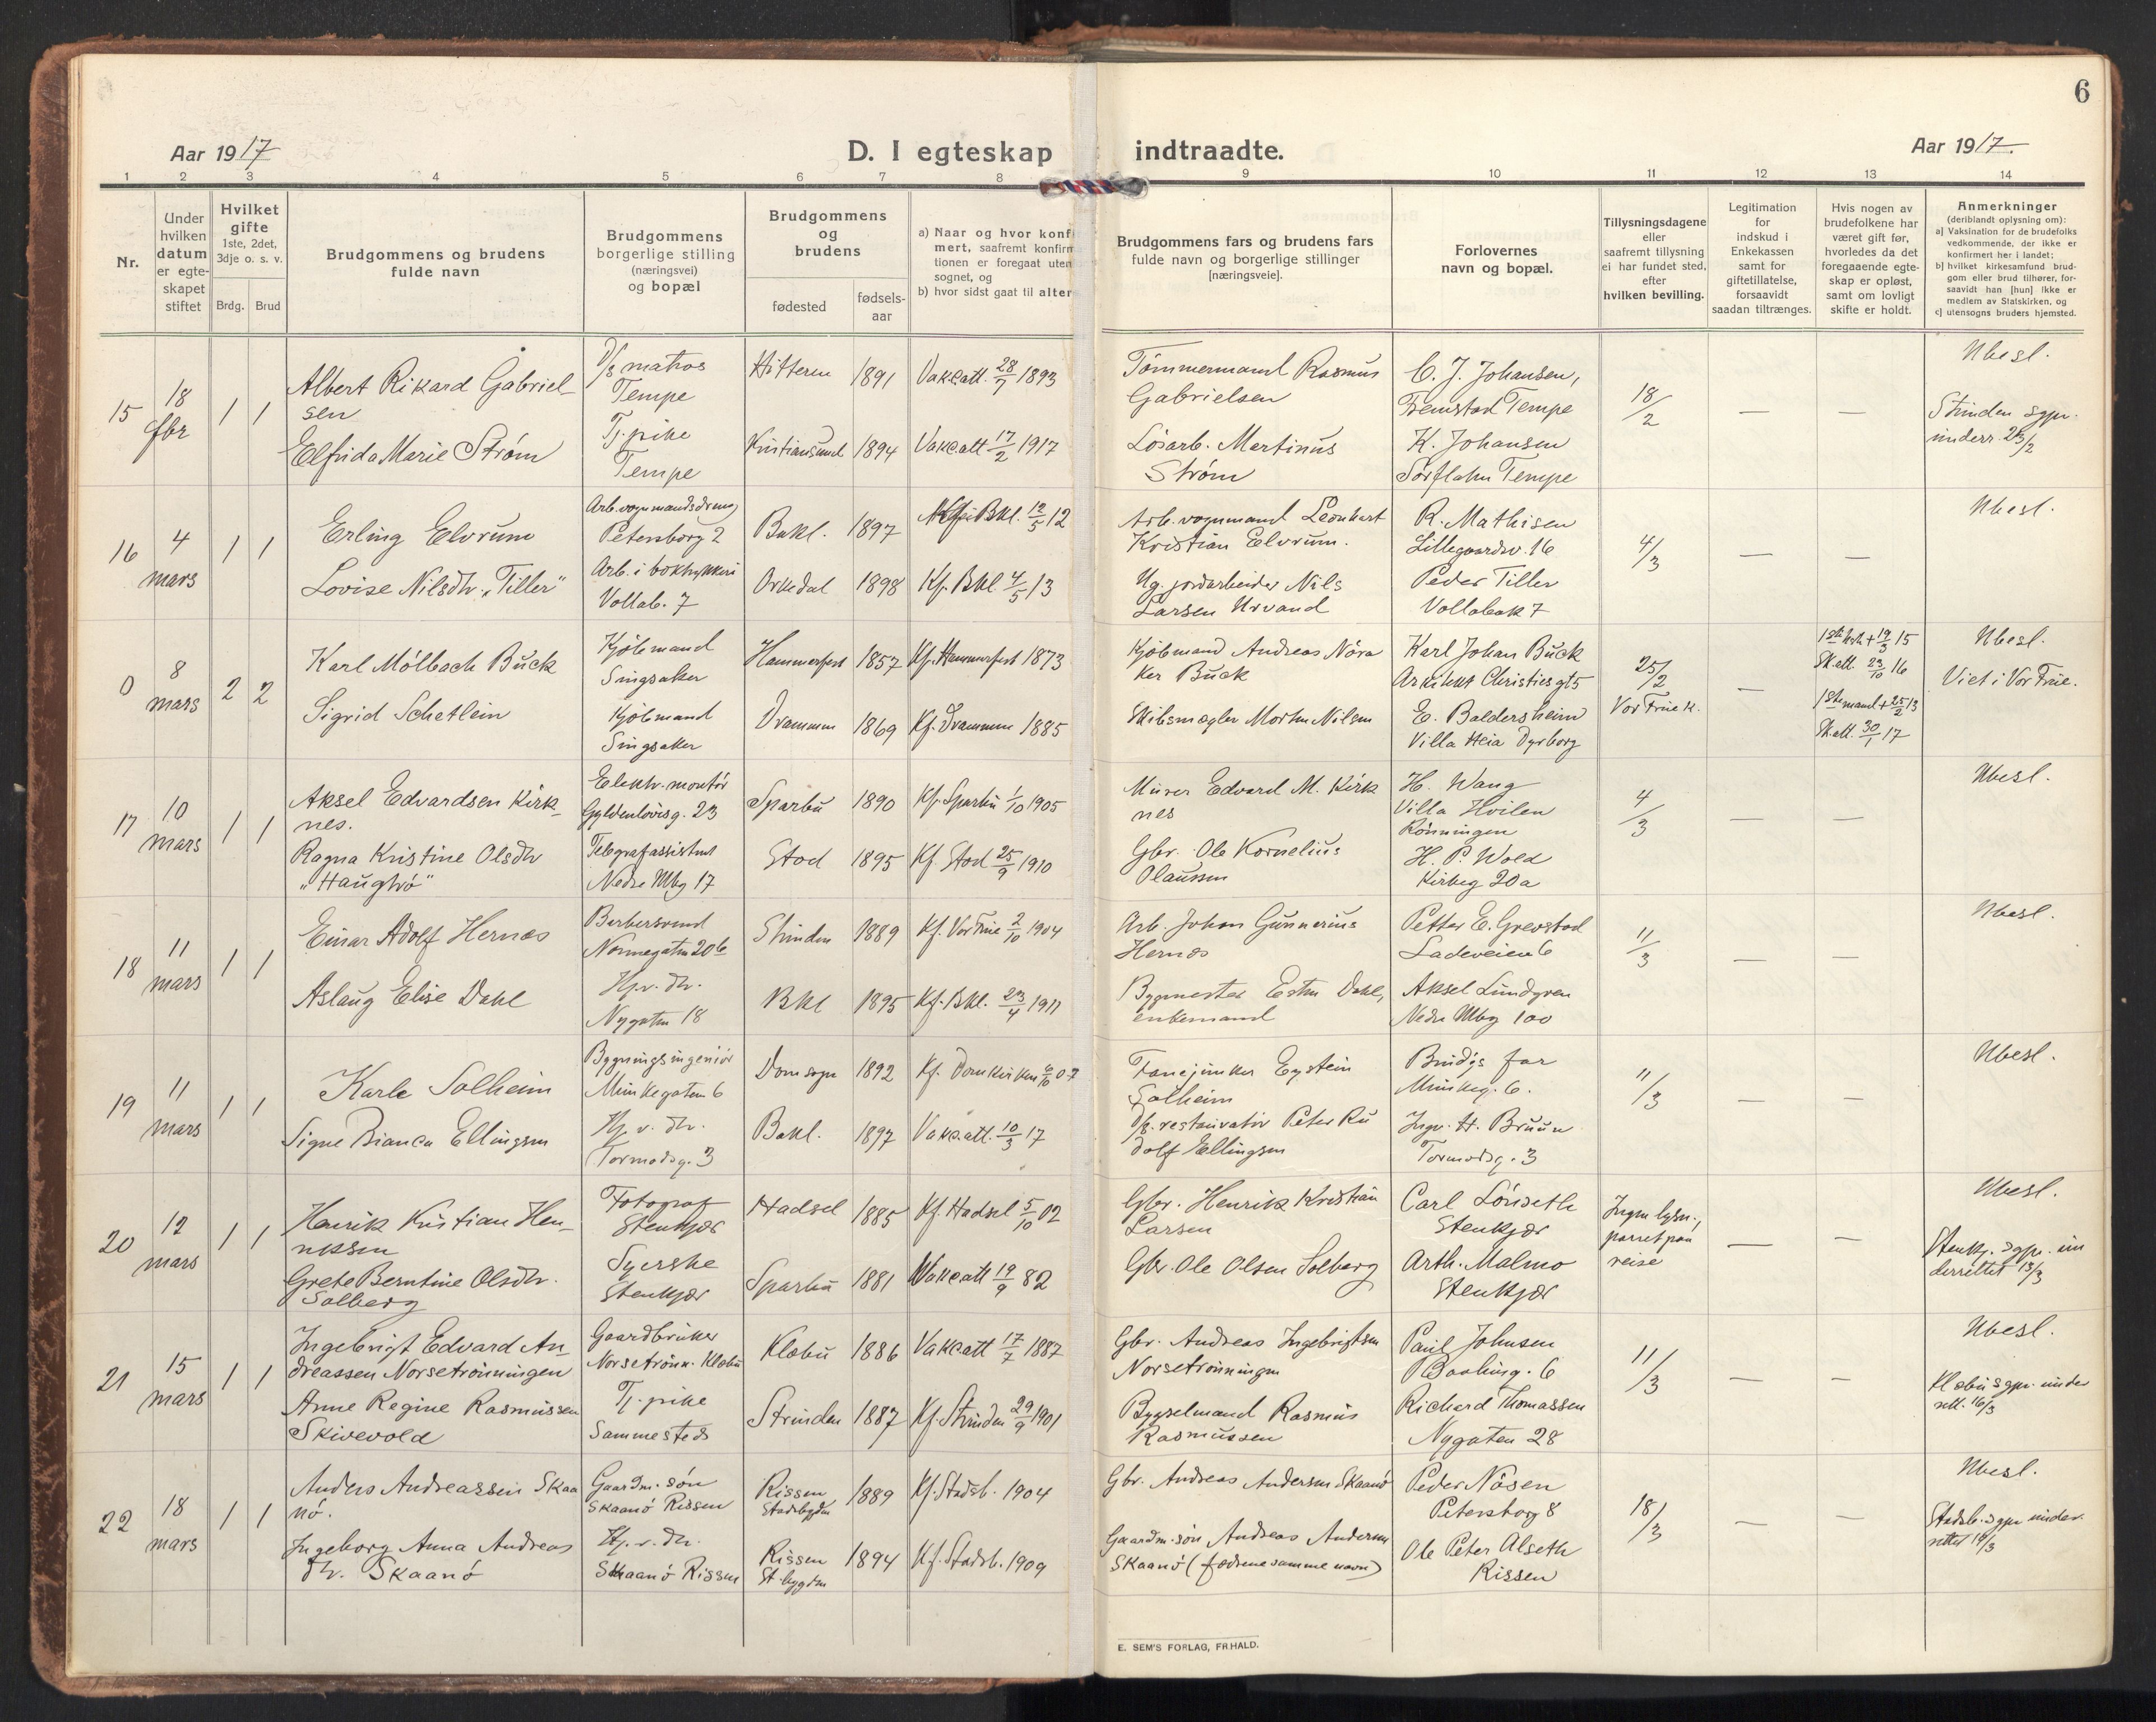 6
Aar 1917
D. I egteskap indtraadte.
Aar 1917.
1 2 3 4 5 6 7 8 9 10 11 12 13 14
Nr.
Under
hvilken
datum
er egte-
skapet
stiftet
Hvilket
gifte
1ste, 2det,
3dje o. s. v.
Brdg. Brud
Brudgommens og brudens
fulde navn
Brudgommens
borgerlige stilling
(næringsvei)
og bopæl
Brudgommens
og
brudens
fødested
fødsels-
aar
a) Naar og hvor konfi
mert, saafremt konfirm
tionen er foregaat uten
sognet, og
b) hvor sidst gaat til alter
Brudgommens fars og brudens fars
fulde navn og borgerlige stillinger
[næringsveie].
Forlovernes
navn og bopæl.
Tillysningsdagene
eller
saafremt tillysning
ei har fundet sted,
efter
hvilken bevilling.
Legitimation
for
indskud i
Enkekassen
samt for
giftetillatelse,
forsaavidt
saadan tiltrænges.
Hvis nogen av
brudefolkene har
været gift før,
hvorledes da det
foregaaende egte-
skap er opløst,
samt om lovligt
skifte er holdt.
Anmerkninger
(deriblandt oplysning om):
a] Vaksination for de brudefolks
vedkommende, der ikke er
konfirmert her i landet;
b] hvilket kirkesamfund brud-
gom eller brud tilhører, for-
saavidt han [hun] ikke er
medlem av Statskirken, og
c] utensogns bruders hjemsted.
15
18
fbr
1 1
Albert Rikard Gabriel-
sen
Elfrida Marie Strøm
D/s matros
Tempe
Tj. pike
Tempe
Hitteren 1891 Vakc.att. 28/7 1893
Kristiansund 1894 Vakc.att 17/2 1917
Tømmermand Rasmus
Gabrielsen
Løsarb. Martinus
Strøm
C. J. Johansen,
Fremstad Tempe
K. Johansen
Sørflaten Tempe
18/2
— —
Ubesl.
Strinden sgpr.
underr. 23/2
16
4
mars
1 1
Erling Elvrum
Lovise Nilsdtr. "Tiller"
Arb. vognmandsdreng
Petersborg 2
Arb. i boktrykkeri
Vollab. 7
Bakl. 1897 Kf. i Bkl. 12/5 12
Orkedal 1898 Kf. Bkl. 4/5 13
Arb. vognmand Leonhart
Kristian Elvrum.
Ug. jordarbeider Nils
Larsen Urvand
R. Mathisen
Lillegaardsv. 16
Peder Tiller
Vollabak 7
4/3
— —
Ubesl.
0
8
mars
2 2
Karl Mölbach Buck
Sigrid Schetlein
Kjöbmand
Singsaker
Kjöbmand
Singsaker
Hammerfest 1857 Kf. Hammerfest 1873
Drammen 1869 Kf. Drammen 1885
Kjöbmand Andreas Nöra
ker Buck
Skibsmægler Morten Nilsen
Karl Johan Buck
Arkitekt Christiesgt 5
E. Baldersheim
Villa Heia Dyrborg
25/2
Vor Frue k.
—
1ste hstr + 19/3 15
Sk.att. 23/10 16
1ste mand + 25/2 13
Sk.att. 30/1 17
Ubesl.
Viet i Vor Frue.
17
10
mars
1 1
Aksel Edvardsen Kirk-
nes.
Ragna Kristine Olsdtr
"Haugtrö"
Elektr. montör
Gyldenlövesg. 23
Telegrafassistent
Nedre Mbg 17
Sparbu 1890 Kf. Sparbu 1/10 1905
Stod 1895 Kf. Stod 25/9 1910
Murer Edvard M. Kirk
nes
Gbr. Ole Kornelius
Olaussen
H. Wang
Villa Hvilen
Rönningen
H. P. Wold
Kirkeg 20a
4/3
— —
Ubesl.
18
11
mars
1 1
Einar Adolf Hernæs
Aslaug Elise Dahl
Barbersvend
Nonnegaten 20 b
Hj.v. dtr.
Nygaten 18
Strinden 1889 Kf. Vor Frue 2/10 1904
Bkl 1895 Kf. Bkl. 23/4 1911
Arb. Johan Gunnerius
Hernæs
Bygmester Esten Dahl,
enkemand
Petter E. Grevstad
Ladeveien 6
Aksel Lundgren
Nedre Mbg 100
11/3
— —
Ubesl.
19
11
mars
1 1
Karle Solheim
Signe Bianca Ellingsen
Bygningsingeniör
Munkegaten 6
Hj. v. dtr.
Tormodsg. 3
Domsogn 1892 Kf. Domkirken 6/10 07
Bakl. 1897 Vakc.att. 10/3 17
Fanejunker Eystein
Solheim
D/s. restauratör Peter Ru
dolf Ellingsen
Brudgs far
Munkeg. 6.
Ingv. H. Bruun
Tormodsg. 3
11/3
— —
Ubesl.
20
12
mars
1 1
Henrik Kristian Hen-
riksen
Grete Berntine Olsdtr.
Solberg
Fotograf
Stenkjær
Syerske
Stenkjær
Hadsel 1885 Kf. Hadsel 5/10 02
Sparbu 1881 Vakc.att 19/9 82
Gbr. Henrik Kristian
Larsen
Gbr. Ole Olsen Solberg
Carl Lönseth
Stenkjær
Arth. Malmo
Stenkjær
Ingen lysn.,
parret paa
reise
— —
Ubesl.
Stenkj. sgpr. un
derrettet 13/3
21
15
mars
1 1
Ingebrigt Edvard An-
dreassen Norsetrönningen
Anne Regine Rasmussen
Skivevold
Gaardbruker
Norsetrönn. Klæbu
Tj. pike
Sammesteds
Klæbu 1886 Vakc.att 17/7 1887
Strinden 1887 Kf. Strinden 29/9 1901
Gbr. Andreas Ingebrigtsen
Norsetrönningen
Bygselmand Rasmus
Rasmussen
Paul Johnsen
Baaling. 6
Richard Thomassen
Nygaten 28
11/3
— —
Ubesl.
Klæbu sgpr. under
rett. 16/3
22
18
mars
1 1
Anders Andreassen Skaa
nö.
Ingeborg Anna Andreas
dtr. Skaanö
Gaardm. sön
Skaanö Rissen
Hj. v. dtr.
Skaanö Rissen
Rissen
Stadsbygden
1889 Kf. Stadsb. 1904
Rissen
St. bygden
1894 Kf. Stadsb. 1909
Gbr. Andreas Andersen Skaanö
Gaardm. sön Andreas Andersen
Skaanö (fædrene samme navn)
Peder Näsen
Petersborg 8
Ole Peter Alseth
Rissen
18/3
— —
Ubesl.
Stadsb. sgpr under.
rettet 19/3
E. SEM'S FORLAG, FR.HALD.